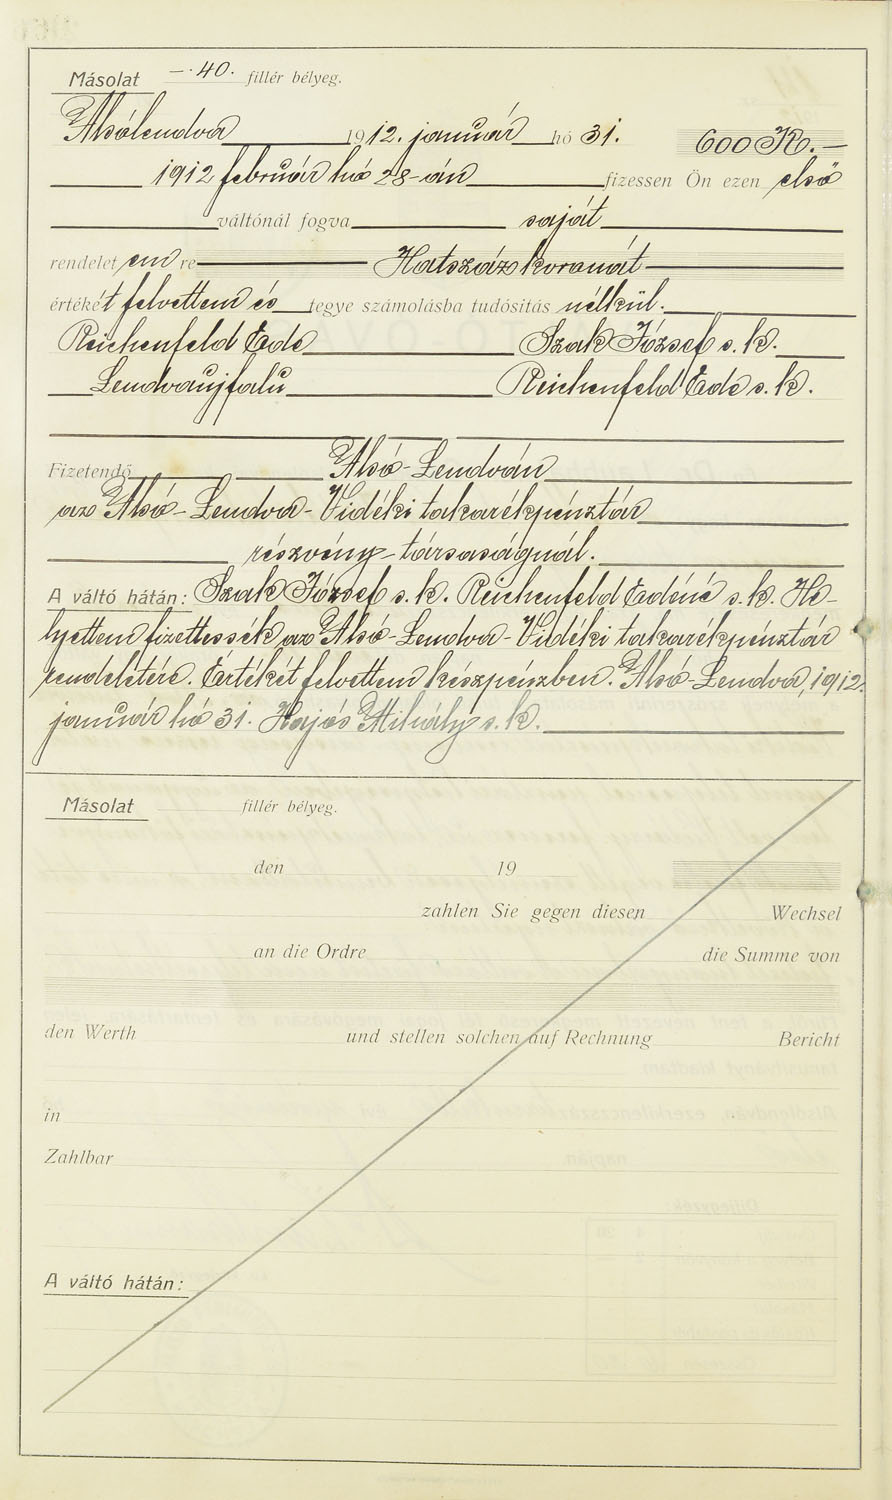 Másolat —.40. fillér bélyeg.
Alsólendva 1912. január hó 31. 600 K.—
1912 február hó 28-án fizessen Ön ezen első
váltónál fogva saját
rendelet em re Hatszáz koronát
értékét felvettem és tegye számolásba tudósítás nélkül.
Reichenfeld Ede Szak József s. k.
Lendvaujfalu Reichenfeld Ede s. k.
Fizetendő Alsó-Lendván
az Alsó-Lendva-Vidéki takarékpénztár
részvény-társaságnál.
A váltó hátán: Szak József s. k. Reichenfeld Edéné s. k. He-
lyettem fizettessék az Alsó-Lendva-Vidéki takarékpénztár
rendeletére. Értékét felvettem készpénzben. Alsó-Lendva, 1912.
január hó 31. Hajós Mihály s. k.
Másolat fillér bélyeg.
den 19
zahlen Sie gegen diesen Wechsel
an die Ordre die Summe von
den Werth und stellen solchen auf Rechnung Bericht
in
Zahlbar
A váltó hátán: